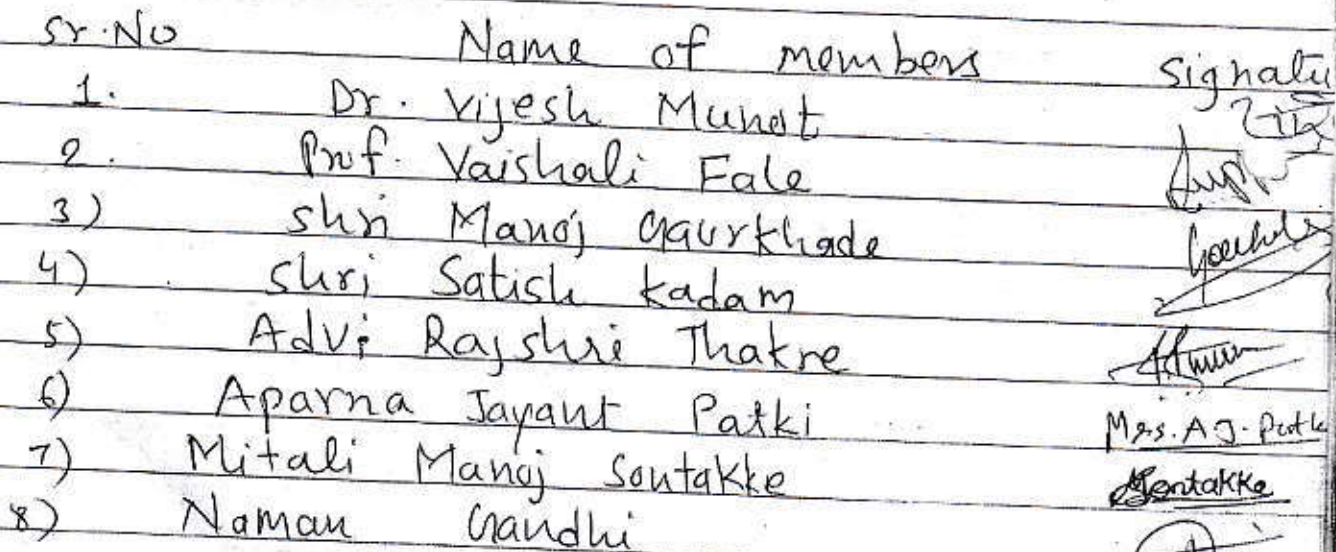 Sr.No Name of members Signatu
1. Dr. Vijesh Munot
2. Prof. Vaishali Fale
3) shri Manoj Gaurkhade
4) shri Satish Kadam
5) Adv. Rajshri Thakre
6) Aparna Jayant Patki Mrs. A J. Patk
7) Mitali Manoj Sontakke Sontakke
8) Naman Gandhi